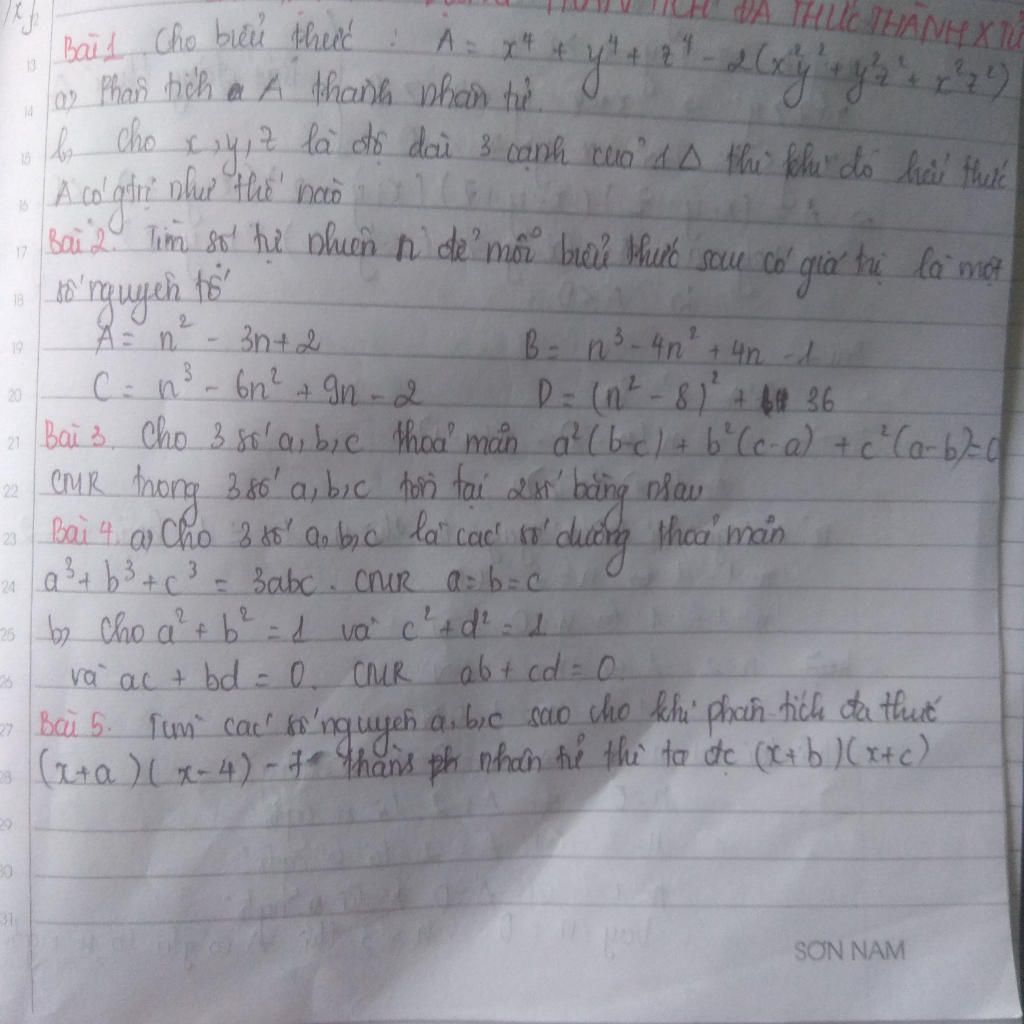 PHÂN TÍCH ĐA THỨC THÀNH X TỬ
Bài 1 Cho biểu thức : A = x⁴ + y⁴ + z⁴ - 2(x²y² + y²z² + x²z²)
a) Phân tích A thành nhân tử.
b) Cho x, y, z là độ dài 3 cạnh của 1 Δ thì khi đó biểu thức
A có gtrị như thế nào
Bài 2. Tìm số tự nhiên n để mỗi biểu thức sau có giá trị là một
số nguyên tố
A = n² - 3n + 2 B = n³ - 4n² + 4n - 1
C = n³ - 6n² + 9n - 2 D = (n² - 8)² + 36
Bài 3. Cho 3 số a, b, c thoả mãn a²(b-c) + b²(c-a) + c²(a-b)=0
CMR trong 3 số a, b, c tồn tại 2 số bằng nhau
Bài 4. a) Cho 3 số a, b, c là các số dương thoả mãn
a³ + b³ + c³ = 3abc. CMR a = b = c
b) Cho a² + b² = 1 và c² + d² = 1
và ac + bd = 0. CMR ab + cd = 0
Bài 5. Tìm các số nguyên a, b, c sao cho khi phân tích đa thức
(x+a)(x-4) - 7 nhân tử thì ta đc (x+b)(x+c)
SƠN NAM